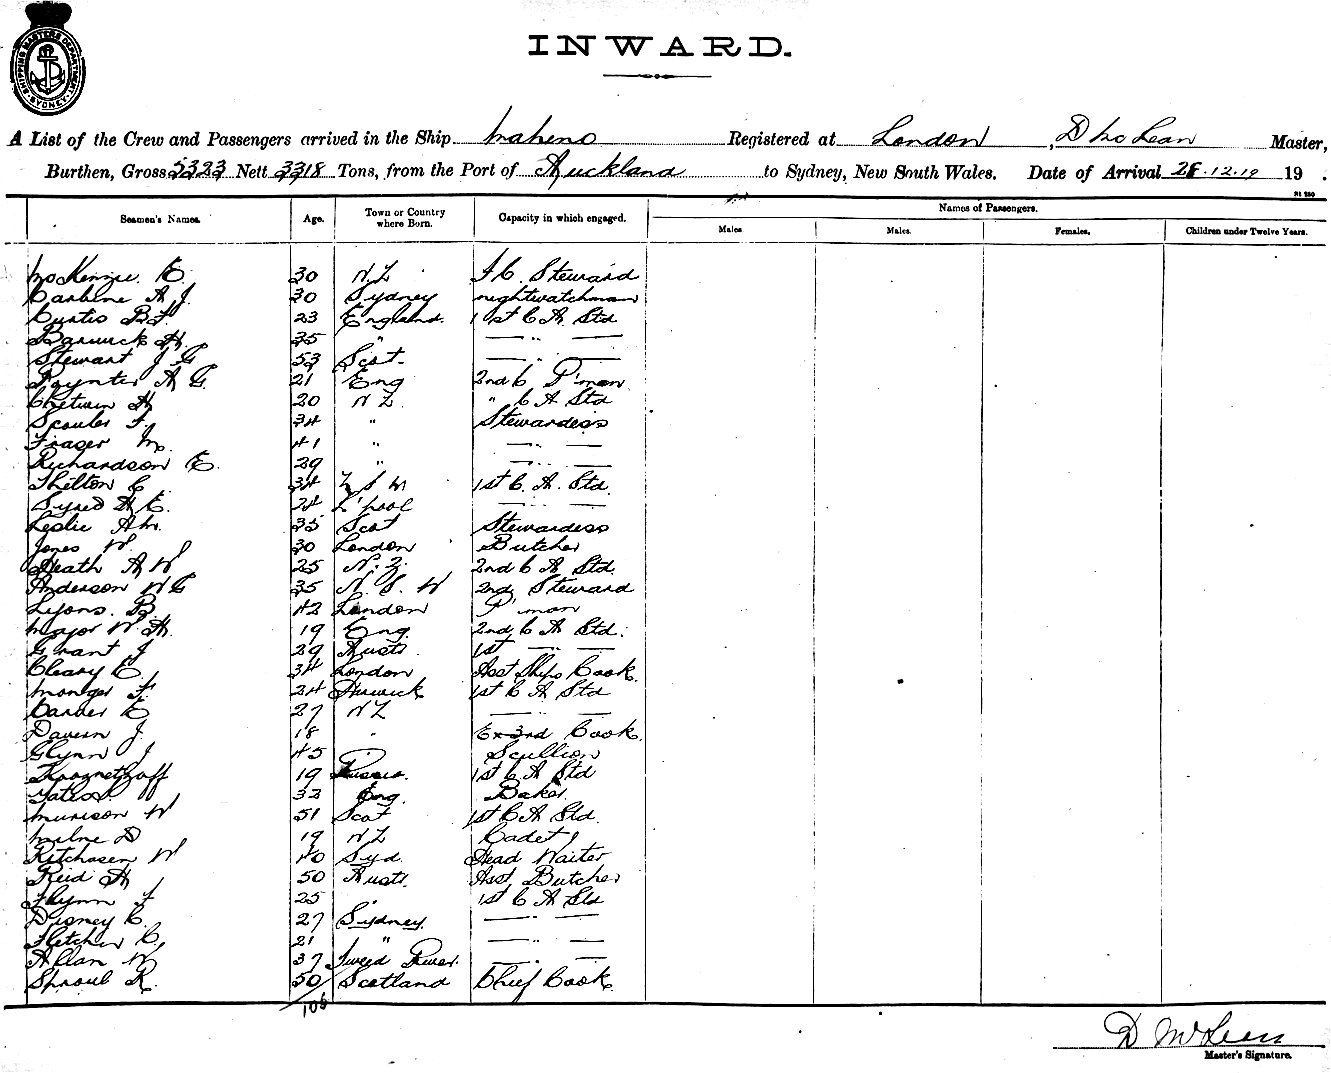 SHIPPING MASTERS DEPARTMENT SYDNEY
INWARD.
A List of the Crew and Passengers arrived in the Ship Maheno Registered at London, D McLean Master,
Burthen, Gross 5323 Nett 3318 Tons, from the Port of Auckland to Sydney, New South Wales. Date of Arrival .12.19 19 .
Seamen's Names. Age. Town or Country where Born. Capacity in which engaged. Names of Passengers.
Males Males. Females. Children under Twelve Years.
McKenzie E 30 N.Z. F.C. Steward
Carbine A J. 30 Sydney nightwatchman
Curtis B F. 23 England. 1st C A. Std
Barwick H. 35 " — " —
Stewart J G 53 Scot. — " —
Poynter A G. 21 Eng 2nd C P'man
Chetwin H 20 N Z. " C A Std
Scouler F. 34 " Stewardess
Fraser M. 41 " — " —
Richardson E. 29 " — " —
Skilton C. 34 1st C. A. Std.
Syred A E. 24 L'pool — " —
Leslie A M. 35 Scot Stewardess
Jones W. 30 London Butcher
Heath A W 25 N. Z. 2nd C A Std.
Anderson W G 35 N. S. W 2nd Steward
Lyons. B. 42 London P'man
Major W. H. 19 Eng. 2nd C A Std.
Grant J 29 Austr. 1st — " —
Cleary E. 34 London Asst Ships Cook.
Monger F. 24 Harwick 1st C A Std
Carder E 27 N Z — " —
Davern J. 18 " Ex 3rd Cook.
Glynn J 45 " Scullion
19 Russia. 1st C A Std
Yates 32 Eng. Baker.
Murison W 51 Scot 1st C A Std.
Milne D 19 N Z Cadet
Kitchasen W 40 Syd. Head Waiter
Reid H 50 Austr. Asst. Butcher
Flynn F 25 " 1st C A Std
Disney C. 27 Sydney. — " —
Fletcher C. 21 " — " —
Allan W 37 Tweed River. — " —
Sproul R. 50 Scotland Chief Cook.
106
D McLean
Master's Signature.